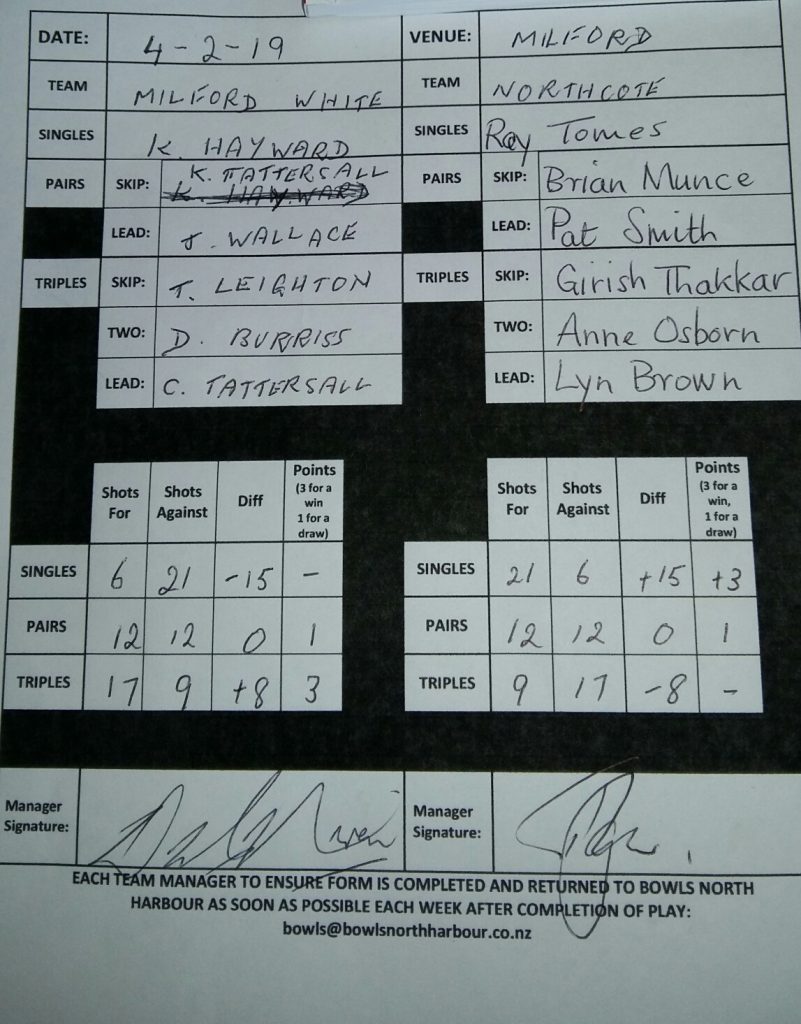 DATE: 4-2-19 VENUE: MILFORD
TEAM MILFORD WHITE TEAM NORTHCOTE
SINGLES K. HAYWARD SINGLES Roy Tomes
PAIRS SKIP: K. TATTERSALL PAIRS SKIP: Brian Munce
K. HAYWARD
LEAD: J. WALLACE LEAD: Pat Smith
TRIPLES SKIP: T. LEIGHTON TRIPLES SKIP: Girish Thakkar
TWO: D. BURRISS TWO: Anne Osborn
LEAD: C. TATTERSALL LEAD: Lyn Brown
Shots For Shots Against Diff Points (3 for a win 1 for a draw) Shots For Shots Against Diff Points (3 for a win, 1 for a draw)
SINGLES 6 21 -15 - SINGLES 21 6 +15 +3
PAIRS 12 12 0 1 PAIRS 12 12 0 1
TRIPLES 17 9 +8 3 TRIPLES 9 17 -8 -
Manager Signature: Manager Signature:
EACH TEAM MANAGER TO ENSURE FORM IS COMPLETED AND RETURNED TO BOWLS NORTH
HARBOUR AS SOON AS POSSIBLE EACH WEEK AFTER COMPLETION OF PLAY:
bowls@bowlsnorthharbour.co.nz